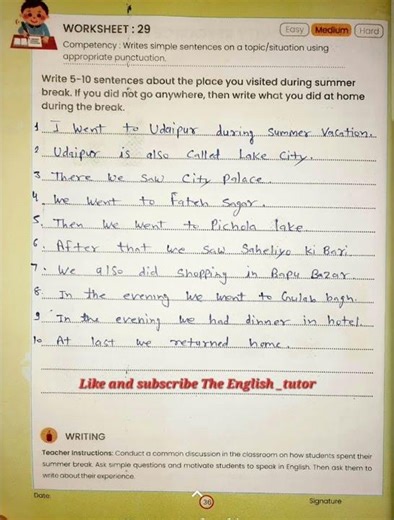 WORKSHEET : 29
Easy Medium Hard
Competency : Writes simple sentences on a topic/situation using
appropriate punctuation.
Write 5-10 sentences about the place you visited during summer
break. If you did not go anywhere, then write what you did at home
during the break.
1 I went to Udaipur during Summer Vacation.
2 Udaipur is also Called Lake City.
3. There we Saw City Palace.
4. We went to Fateh Sagar.
5. Then we went to Pichola lake.
6. After that we Saw Saheliyo ki Bari.
7. We also did Shopping in Bapu Bazar
8. In the evening we went to Gulab bagh.
9 In the evening we had dinner in hotel.
10 At last we returned home.
Like and subscribe The English_tutor
WRITING
Teacher Instructions: Conduct a common discussion in the classroom on how students spent their
summer break. Ask simple questions and motivate students to speak in English. Then ask them to
write about their experience.
Date 36 Signature